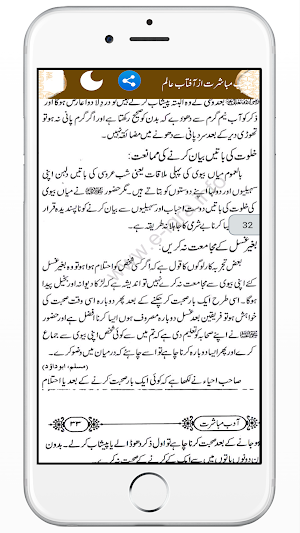 آدابِ مباشرت از آفتاب عالم
بعد وہی لے وہ البتہ پیشاب کرلے
ذکر کو آب نیم گرم سے دھو دے کہ بدن کو صحیح رکھتا ہے اور اگر گرم پانی نہ ہو تو
تھوڑی دیر کے بعد سرد پانی سے دھونے میں مضائقہ نہیں۔
خلوت کی باتیں بیان کرنے کی ممانعت:
بالعموم میاں بیوی کی پہلی ملاقات یعنی شب عروسی کی باتیں دلہن اپنی
سہیلیوں اور دولہا اپنے دوستوں کو بتاتے ہیں۔ مگر حضور ﷺ نے میاں بیوی
کی خلوت کی باتیں دوست احباب اور سہیلیوں سے بیان کرنے کو ناپسندیدہ قرار
کرنا بے شرمی کا جاہلانہ طریقہ ہے۔
32
بغیر غسل کے مجامعت نہ کریں:
بعض تجربہ کار لوگوں کا قول ہے کہ اگر کسی شخص کو احتلام ہوا ہو تو وہ بغیر غسل
کئے اپنی بیوی سے مجامعت نہ کرے نہیں تو اندیشہ ہے کہ لڑکا دیوانہ اور بخیل پیدا
ہوگا۔ اسی طرح ایک بار صحبت کر چکنے کے بعد پھر دوبارہ اسی وقت صحبت کی
خواہش ہو تو فریقین بعد غسل دوبارہ مصروف ہوں ایسا کرنا افضل ہے اور حضور
ﷺ نے اپنے صحابہ کو تعلیم دی ہے کہ تم میں سے کوئی شخص اپنی بیوی سے جماع
کرے اور پھر ایسا دوبارہ کرنا چاہے تو اسے چاہئے کہ درمیان میں وضو کرے۔
(مسلم، ابوداؤد)
صاحب احیاء نے لکھا ہے کہ کوئی ایک بار صحبت کرنے کے بعد یا احتلام
آدابِ مباشرت
۳۳
ہو جانے کے بعد صحبت کرنا چاہے تو اول ذکر دھو ڈالے یا پیشاب کرلے۔ بدون
ان دونوں باتوں میں سے ایک کے کرنے کے صحبت نہ کرے